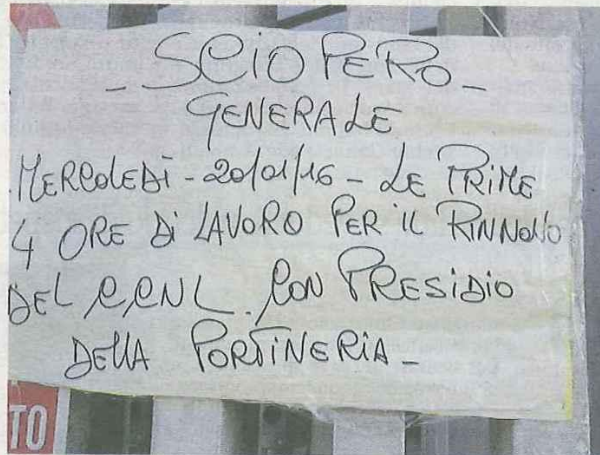 - SCIOPERO -
GENERALE
MERCOLEDì - 20/01/16 - LE PRIME
4 ORE Di LAVORO PER iL RINNOVO
DEL CCNL. CON PRESiDiO
DELLA PORTiNERiA -
TO